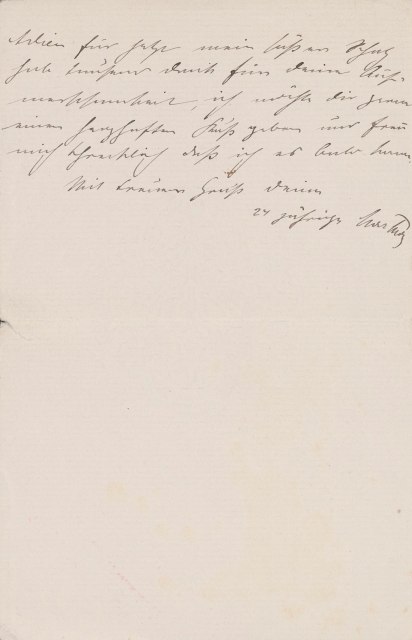 Adieu für jetzt mein süßer Schatz
hab tausend dank für deine Auf-
merksamkeit, ich möchte dir gern
einen herzhaften Kuß geben und freue
mich schrecklich daß ich es bald kann.
Mit treuem Gruß deine
24 jährige